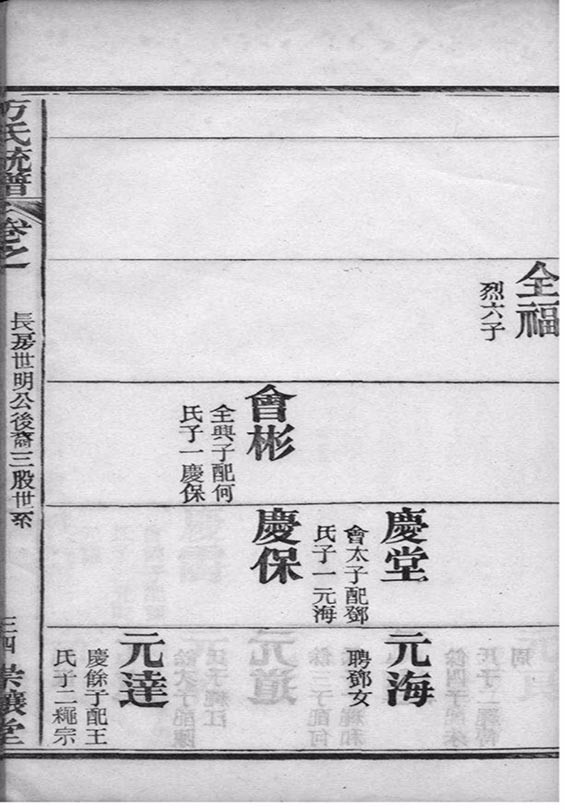 全福
烈六子
會彬
全與子配何
氏子一慶保
慶堂
會太子配鄧
氏子一元海
慶保
元海
聘鄧女
元達
慶餘子配王
氏子二繩宗
方氏統譜
卷之
長房世明公後裔三股世系
三四
崇讓堂